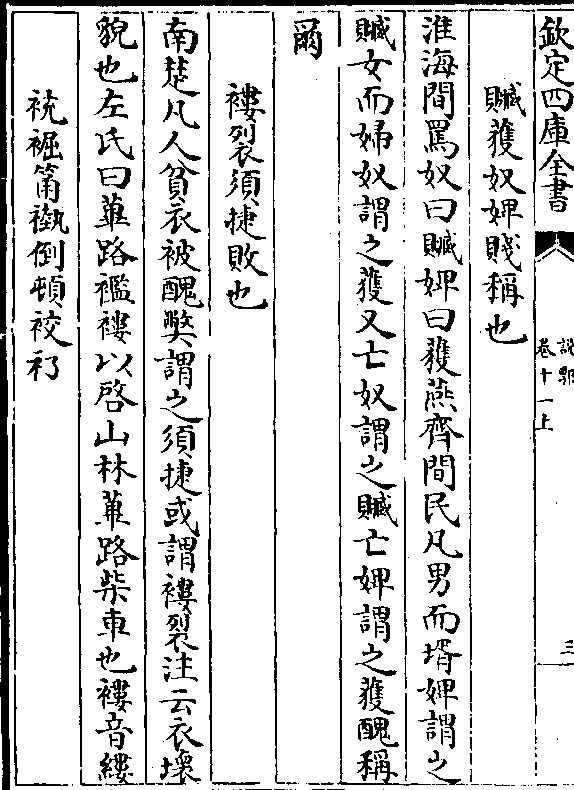 欽定四庫全書
說郛
卷十一上
三
贓獲奴婢賤稱也
淮海間罵奴曰贓婢曰獲燕齊間民凡男而壻婢謂之
贓女而婦奴謂之獲又亡奴謂之贓亡婢謂之獲醜稱
爾
褸裂須捷敗也
南楚凡人貧衣被醜弊謂之須捷或謂褸裂注云衣壞
貌也左氏曰蓽路襤褸以啓山林蓽路柴車也褸音縷
裗裾筩褹倒頓䘨䘥